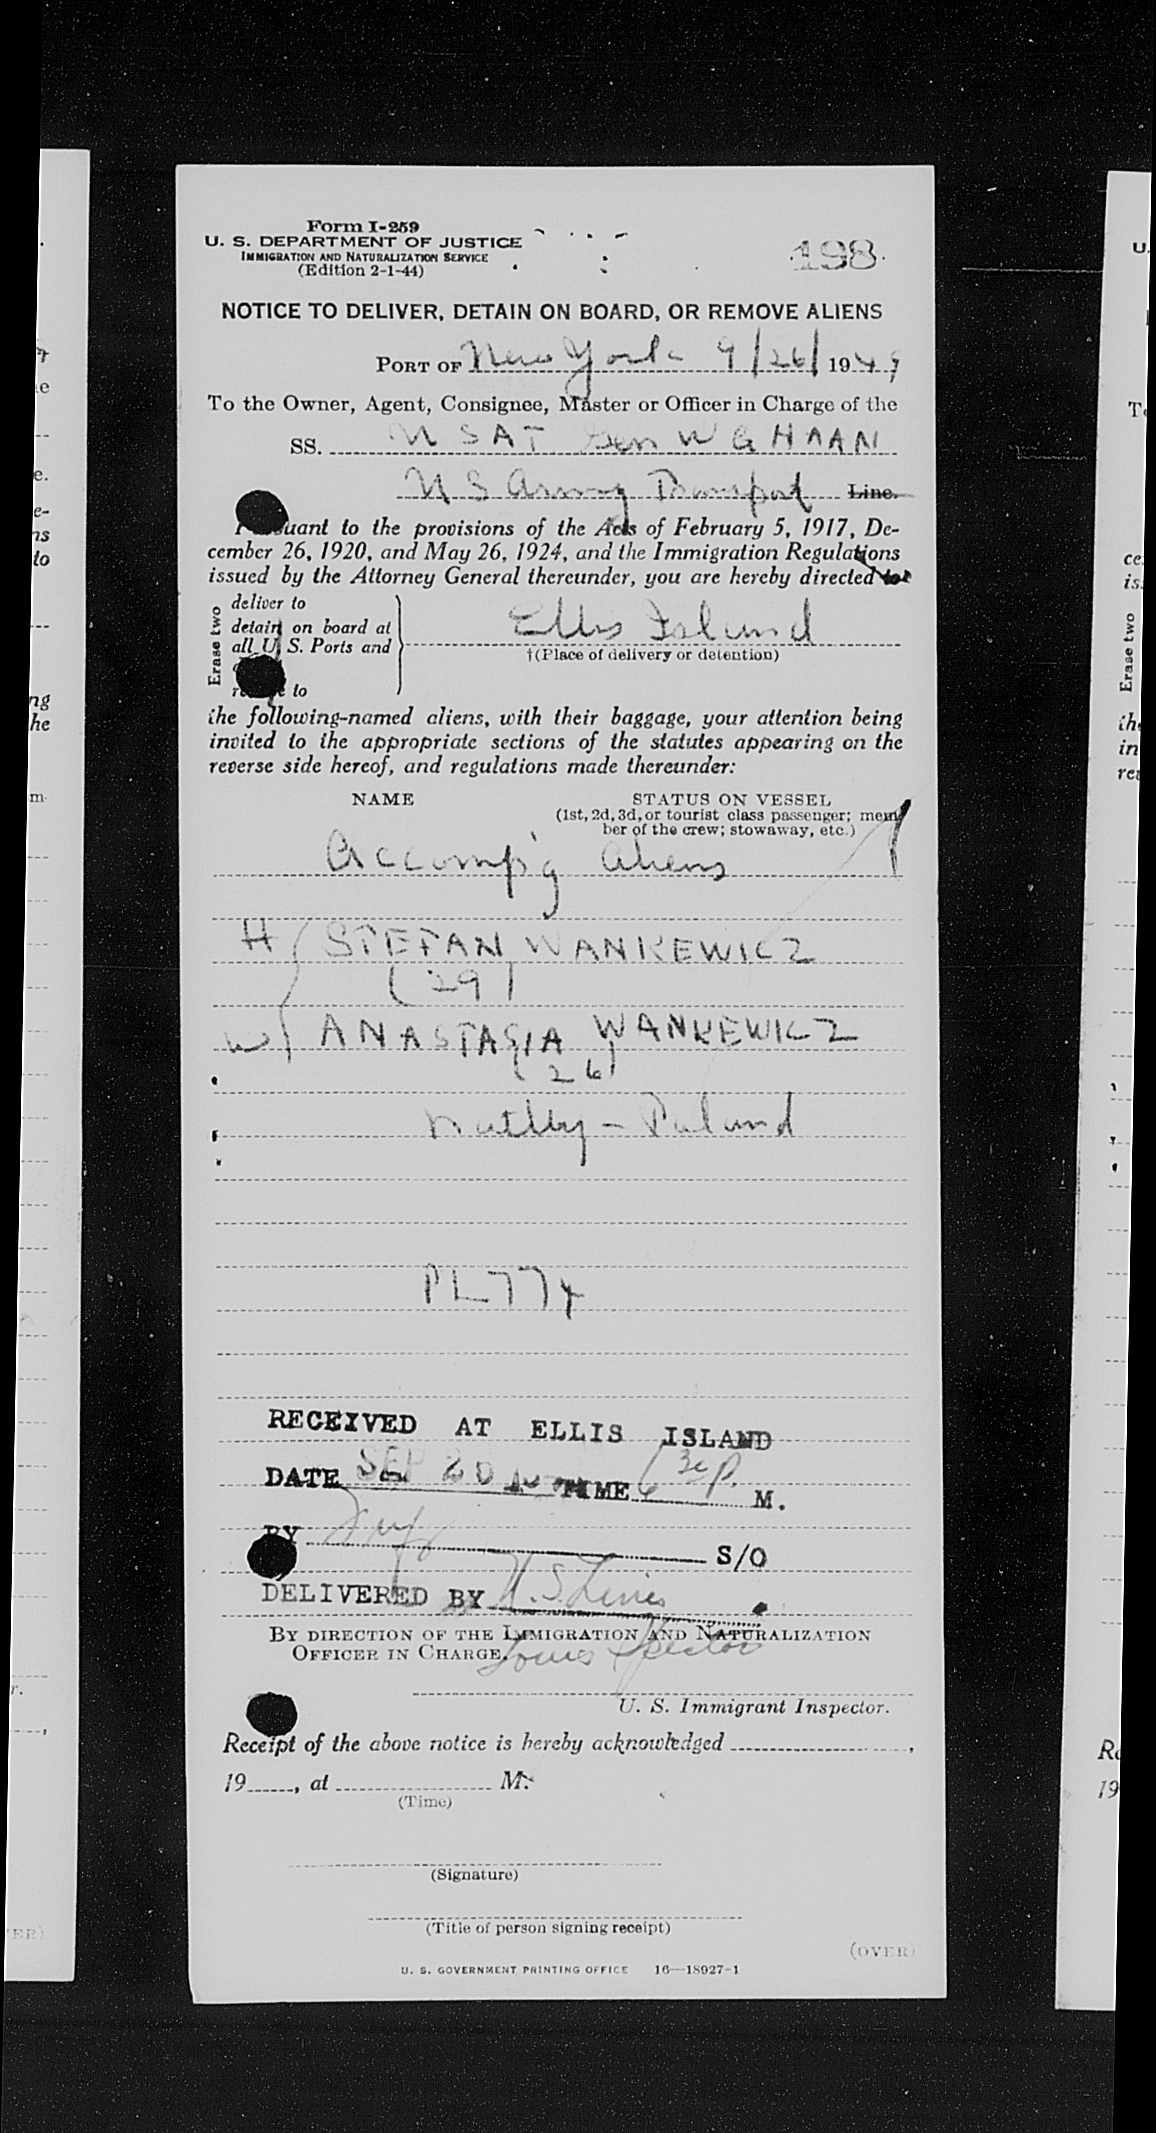 Form I-259
U. S. DEPARTMENT OF JUSTICE
IMMIGRATION AND NATURALIZATION SERVICE
(Edition 2-1-44)
198
NOTICE TO DELIVER, DETAIN ON BOARD, OR REMOVE ALIENS
PORT OF New York 9/26/1949
To the Owner, Agent, Consignee, Master or Officer in Charge of the
SS. U S A T Gen W G HAAN
U S Army Transport Line.
Pursuant to the provisions of the Acts of February 5, 1917, De-
cember 26, 1920, and May 26, 1924, and the Immigration Regulations
issued by the Attorney General thereunder, you are hereby directed to
Erase two
deliver to
detain on board at
all U. S. Ports and
to
Ellis Island
†(Place of delivery or detention)
the following-named aliens, with their baggage, your attention being
invited to the appropriate sections of the statutes appearing on the
reverse side hereof, and regulations made thereunder:
NAME
STATUS ON VESSEL
(1st, 2d, 3d, or tourist class passenger; mem-
ber of the crew; stowaway, etc.)
Accomp'g Aliens
H STEFAN WANKEWICZ
(29)
W ANASTASIA WANKEWICZ
(26)
Natlly - Poland
PL 774
RECEIVED AT ELLIS ISLAND
DATE SEP TIME 6 30 P. M.
BY S/O
DELIVERED BY
BY DIRECTION OF THE IMMIGRATION AND NATURALIZATION
OFFICER IN CHARGE. Louis Spector
U. S. Immigrant Inspector.
Receipt of the above notice is hereby acknowledged ,
19 , at M.
(Time)
(Signature)
(Title of person signing receipt)
(OVER)
U. S. GOVERNMENT PRINTING OFFICE 16—18927-1